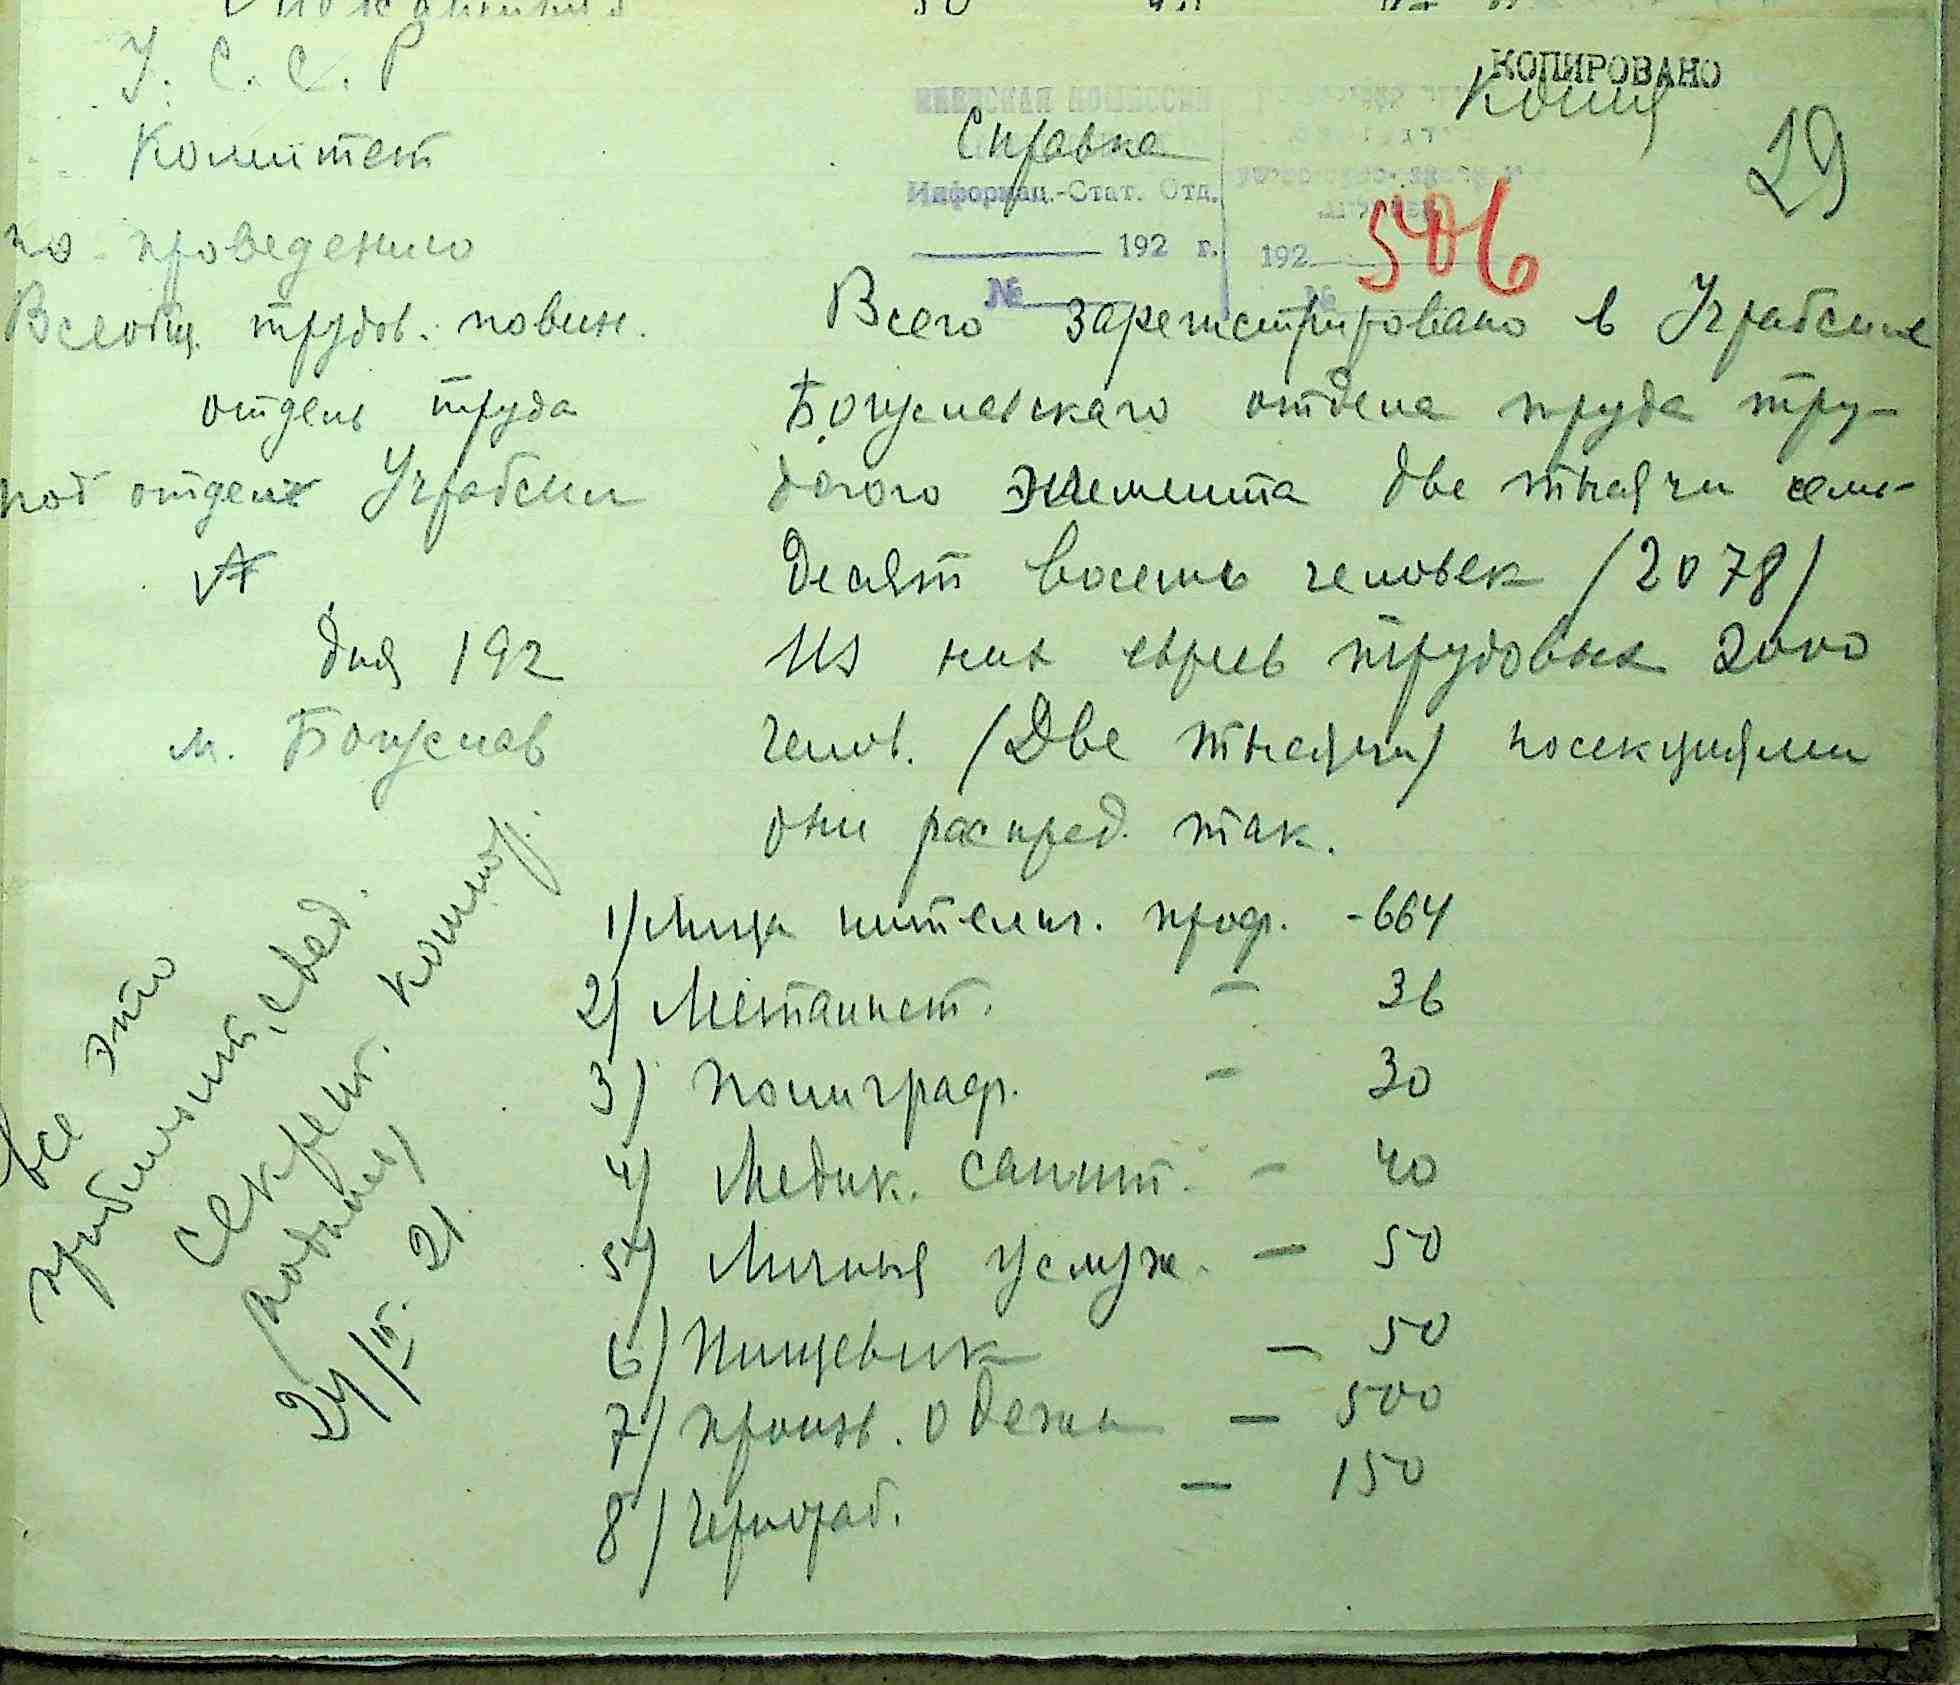 У. С. С. Р
Комитет
по проведению
Всеобщ. трудов. повин.
отдель труда
под отдел Учрабсил
дня 192
м. Богуслав
КОПИРОВАНО
Копия
29
Справка
Информац.-Стат. Отд.
192 г.
192
№
№
506
Всего зарегистрировано в Учрабсиле
Богуславского отдела труда тру-
дового элемента две тысячи семь-
десят восемь человек /2078/
Из них евреев трудовых 2000
челов. /Две тысячи/ по секциям
они распред. так.
1/ Лица интелиг. проф. - 664
2/ Металист. - 36
3/ Полиграф. - 30
4/ Медик. санит. - 40
5/ Личныя услуж. - 50
6/ Пищевик - 50
7/ произв. одежи - 500
8/ Чернораб. - 150
Все это
приблизит. свед.
Секрет.
/подпись/
24/II 21